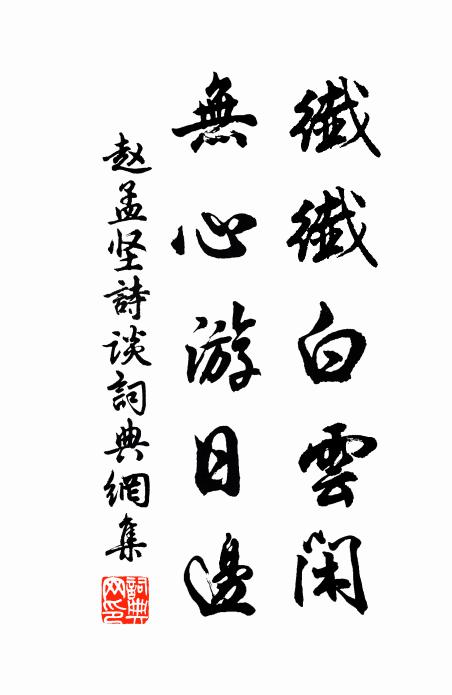 纖纖白雲閑
無心游日邊
赵孟坚詩谈詞典網集
詞典网印